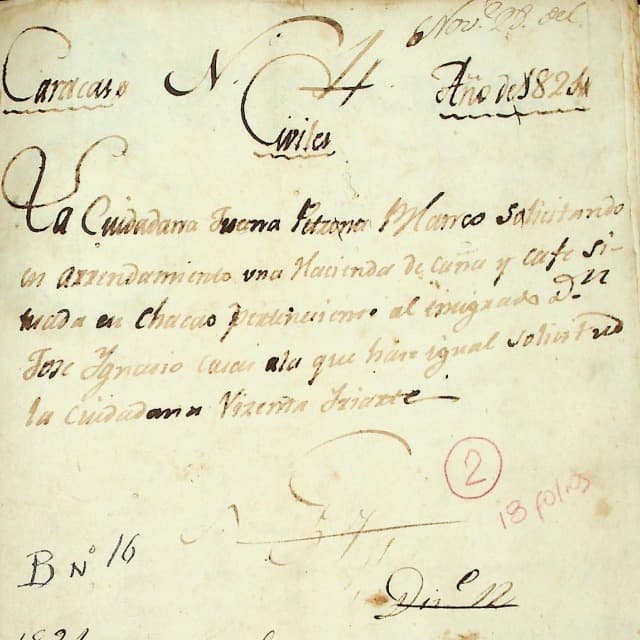 6 Nov.e 29. del
Caracas N. 4 Año de 1824
Civiles
La Cuidadana Juana Petrona Blanco solicitando
en arrendamiento una Hacienda de caña y cafe si-
tuada en Chacao perteneciente al emigrado D.n
Jose Ygnacio casas ala que hase igual solicitud
la Cuidadana Vizenta Iriarte
2
18 folios
B N° 16
1824